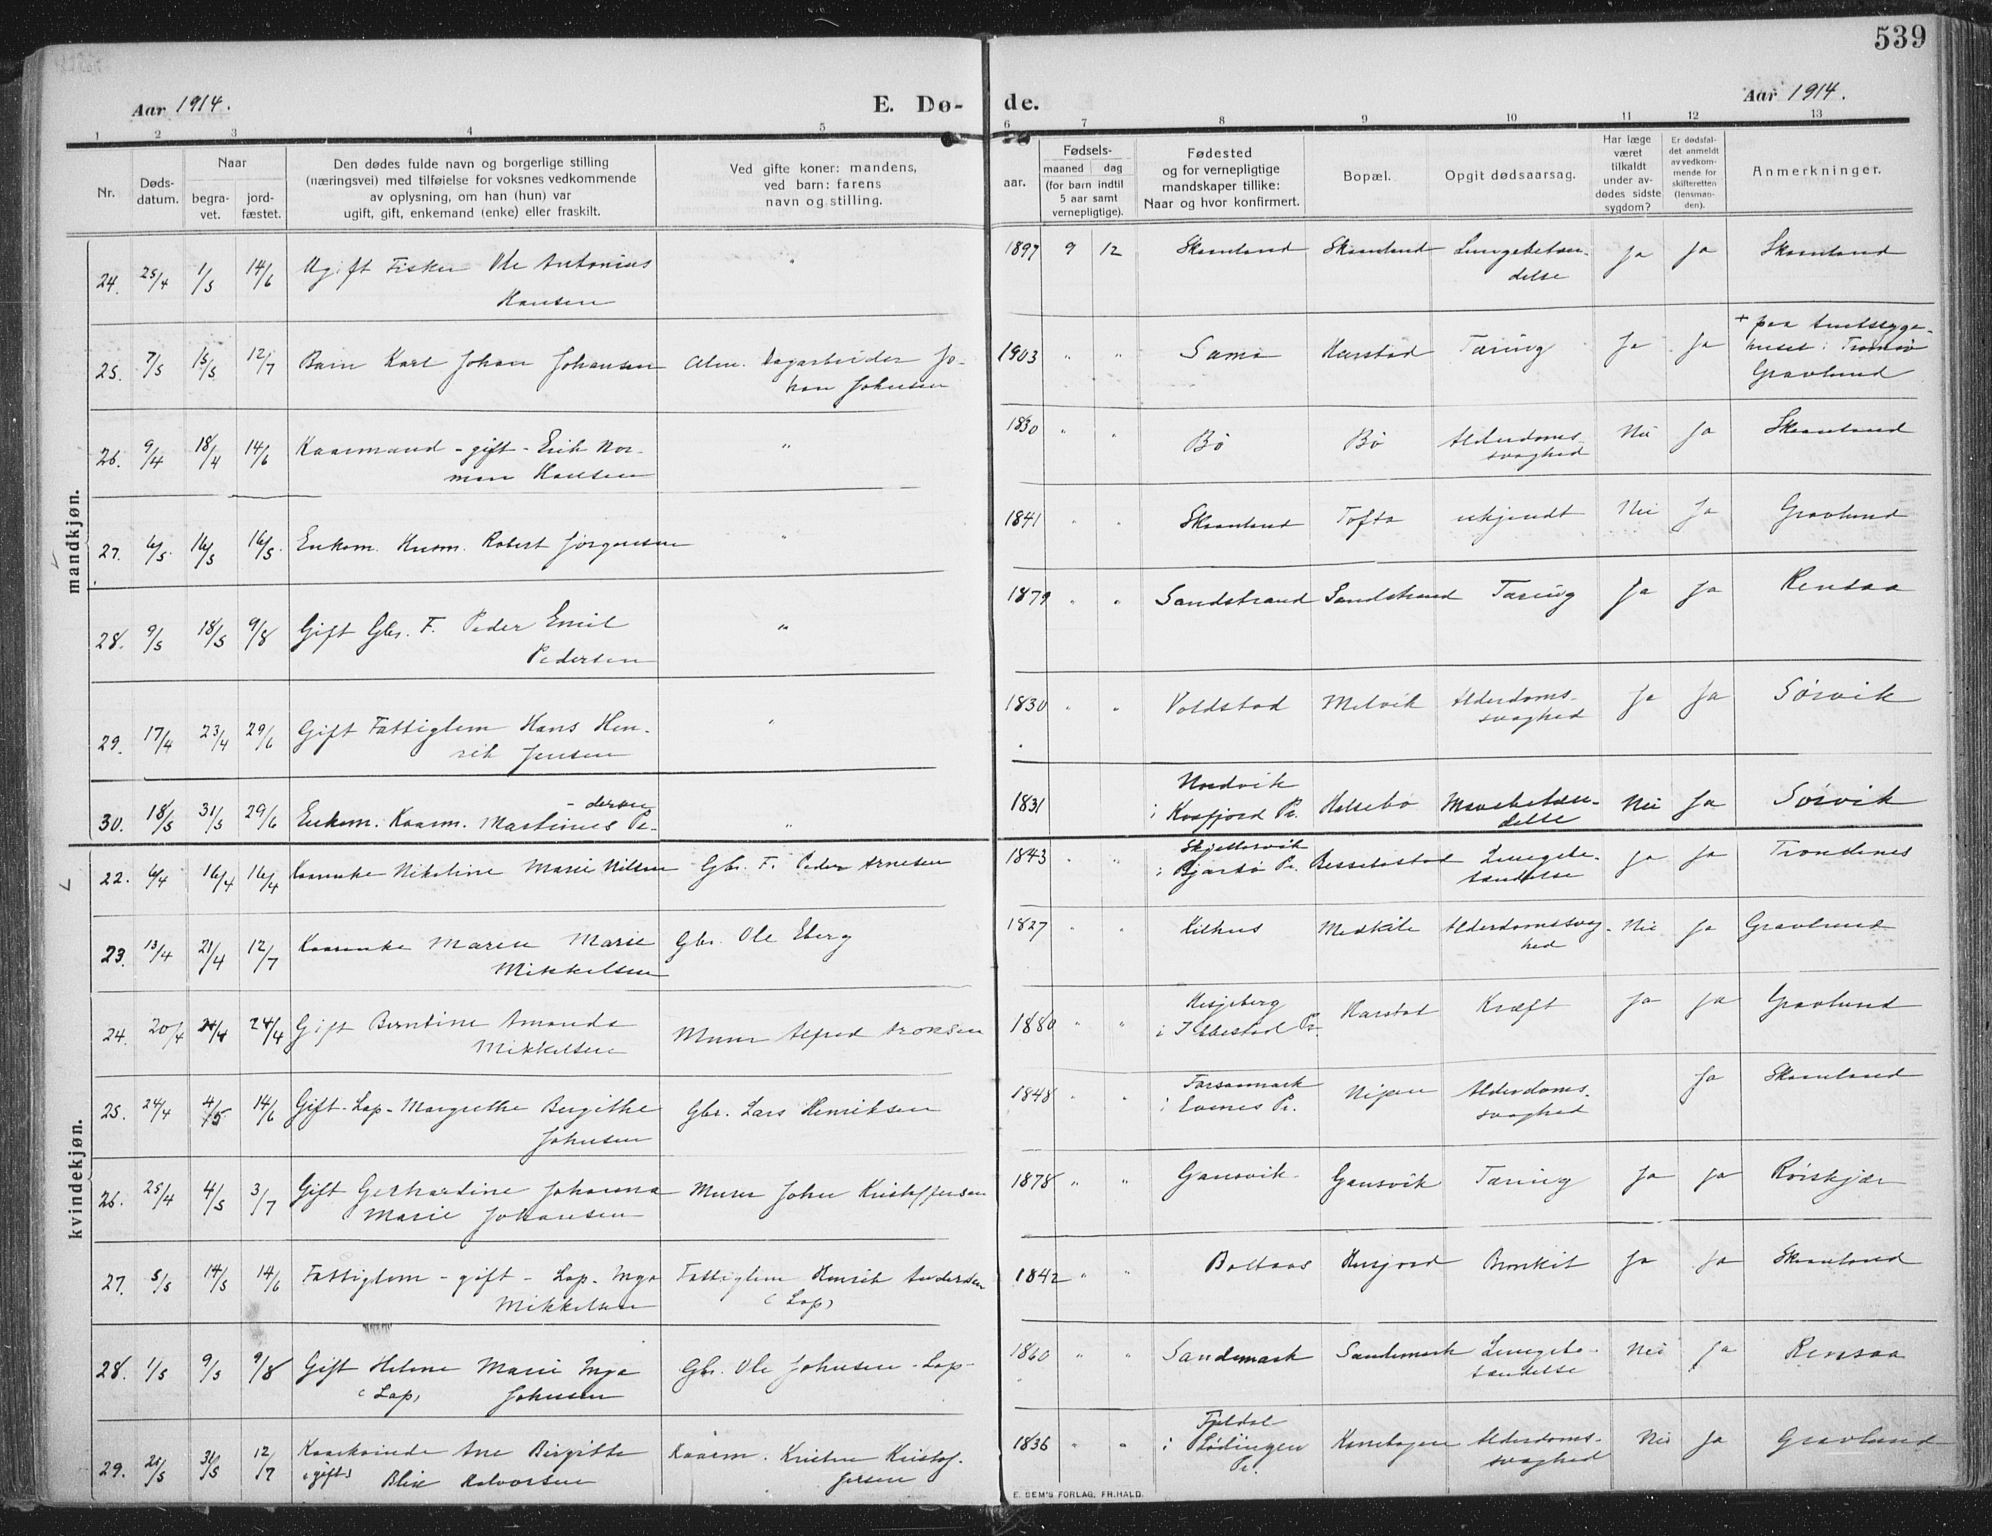 539
Aar 1914.
E. Dø- de.
Aar 1914.
1 2 3 4 5 6 7 8 9 10 11 12 13
Nr.
Døds-
datum.
Naar
begra-
vet.
jord-
fæstet.
Den dødes fulde navn og borgerlige stilling
(næringsvei) med tilføielse for voksnes vedkommende
av oplysning, om han (hun) var
ugift, gift, enkemand (enke) eller fraskilt.
Ved gifte koner: mandens,
ved barn: farens
navn og stilling.
aar.
Fødsels-
maaned dag
(for barn indtil
5 aar samt
vernepligtige).
Fødested
og for vernepligtige
mandskaper tillike:
Naar og hvor konfirmert.
Bopæl.
Opgit dødsaarsag.
Har læge
været
tilkaldt
under av-
dødes sidste
sygdom?
Er dødsfal-
det anmeldt
av vedkom-
mende for
skifteretten
(lensman-
den).
Anmerkninger.
mandkjøn.
24. 25/4 1/5 14/6 Ugift Fisker Ole Antonius " 1897 9 12 Skaanland Skaanland Lungebetæn- Ja Ja Skaanland
Hansen delse
25. 7/5 15/5 12/7 Barn Karl Johan Johansen Alm. Dagarbeider Jo- 1903 " " Sama Harstad Tæring Ja Ja + paa Amtssyge-
han Johnsen huset i Tromsø
Gravlund
26. 9/4 18/4 14/6 Kaarmand - gift - Erik Nor- " 1830 " " Bø Bø Alderdoms- Nei Ja Skaanland
man Hansen svaghed
27. 6/5 16/5 16/5. Enkem. Husm. Robert Jørgensen " 1841 " " Skaanland Tofta ukjendt Nei Ja Gravlund
28. 9/5 18/5 9/8 Gift Gbr. F. Peder Emil " 1879 " " Sandstrand Sandstrand Tæring Ja Ja Rensaa
Pedersen
29. 17/4 23/4 29/6 Gift Fattiglem Hans Hen- " 1830 " " Voldstad Melvik Alderdoms- Ja Ja Sørvik
rik Jensen svaghed
30. 18/5 31/5 29/6 Enkem. Kaarm. Martinus Pe- " 1831 Nordvik Halsebø Mavebetæn- Nei Ja Sørvik
- dersen i Kvæfjord Pr. delse
kvindekjøn.
22. 6/4 16/4 16/4 Kaarenke Nikoline Marie Nilsen Gbr. F. Peder Arnesen 1843 " " i Bjarkø Pr. Bessebostad Lungebe- Ja Ja Trondenes
tændelse
23. 13/4 21/4 12/7 Kaarenke Maren Marie Gbr. Ole Eberg 1827 " " Kilhus Medkile Alderdomssvag- Nei Ja Gravlund
Mikkelsen hed
24. 20/4 24/4 24/4 Gift Berntine Amanda Murer Alfred Aronsen 1880 " " Hesjeberg Harstad Kræft Ja Ja Gravlund
Mikkelsen i Ibbestad Pr.
25. 24/4 4/5 14/6 Gift - Lap - Margrethe Bergithe Gbr. Lars Henriksen 1848 " " Tarsaamark Nipen Alderdoms- Ja Skaanland
Johnsen i Evenes Pr. svaghed
26. 25/4 4/5 3/7 Gift Gerhardine Johanna Murer John Kristoffersen 1878 " " Gausvik Gausvik Tæring Ja Ja Rørskjær
Marie Johansen
27. 5/5 14/5 14/6 Fattiglem - gift - Lap - Inga Fattiglem Henrik Andersen 1842 " " Boltaas Bronkit Ja Ja Skaanland
Mikkelsen (Lap)
28. 1/5 9/5 9/8 Gift Helene Marie Inga Gbr. Ole Johnsen - Lap - 1860 " " Sandemark Sandemark Lungebe- Nei Ja Rensaa
(Lap) Johnsen tændelse
29. 21/5 31/5 12/7 Kaarkvinde Ane Birgitte Kaarm. Kristen Kristof- 1836 " " Fjeldal Kanebogen Alderdoms- Nei Ja Gravlund
(gift) Blix Halvorsen fersen i Lødingen Pr. svaghed
E. SEM'S FORLAG, FR.HALD.